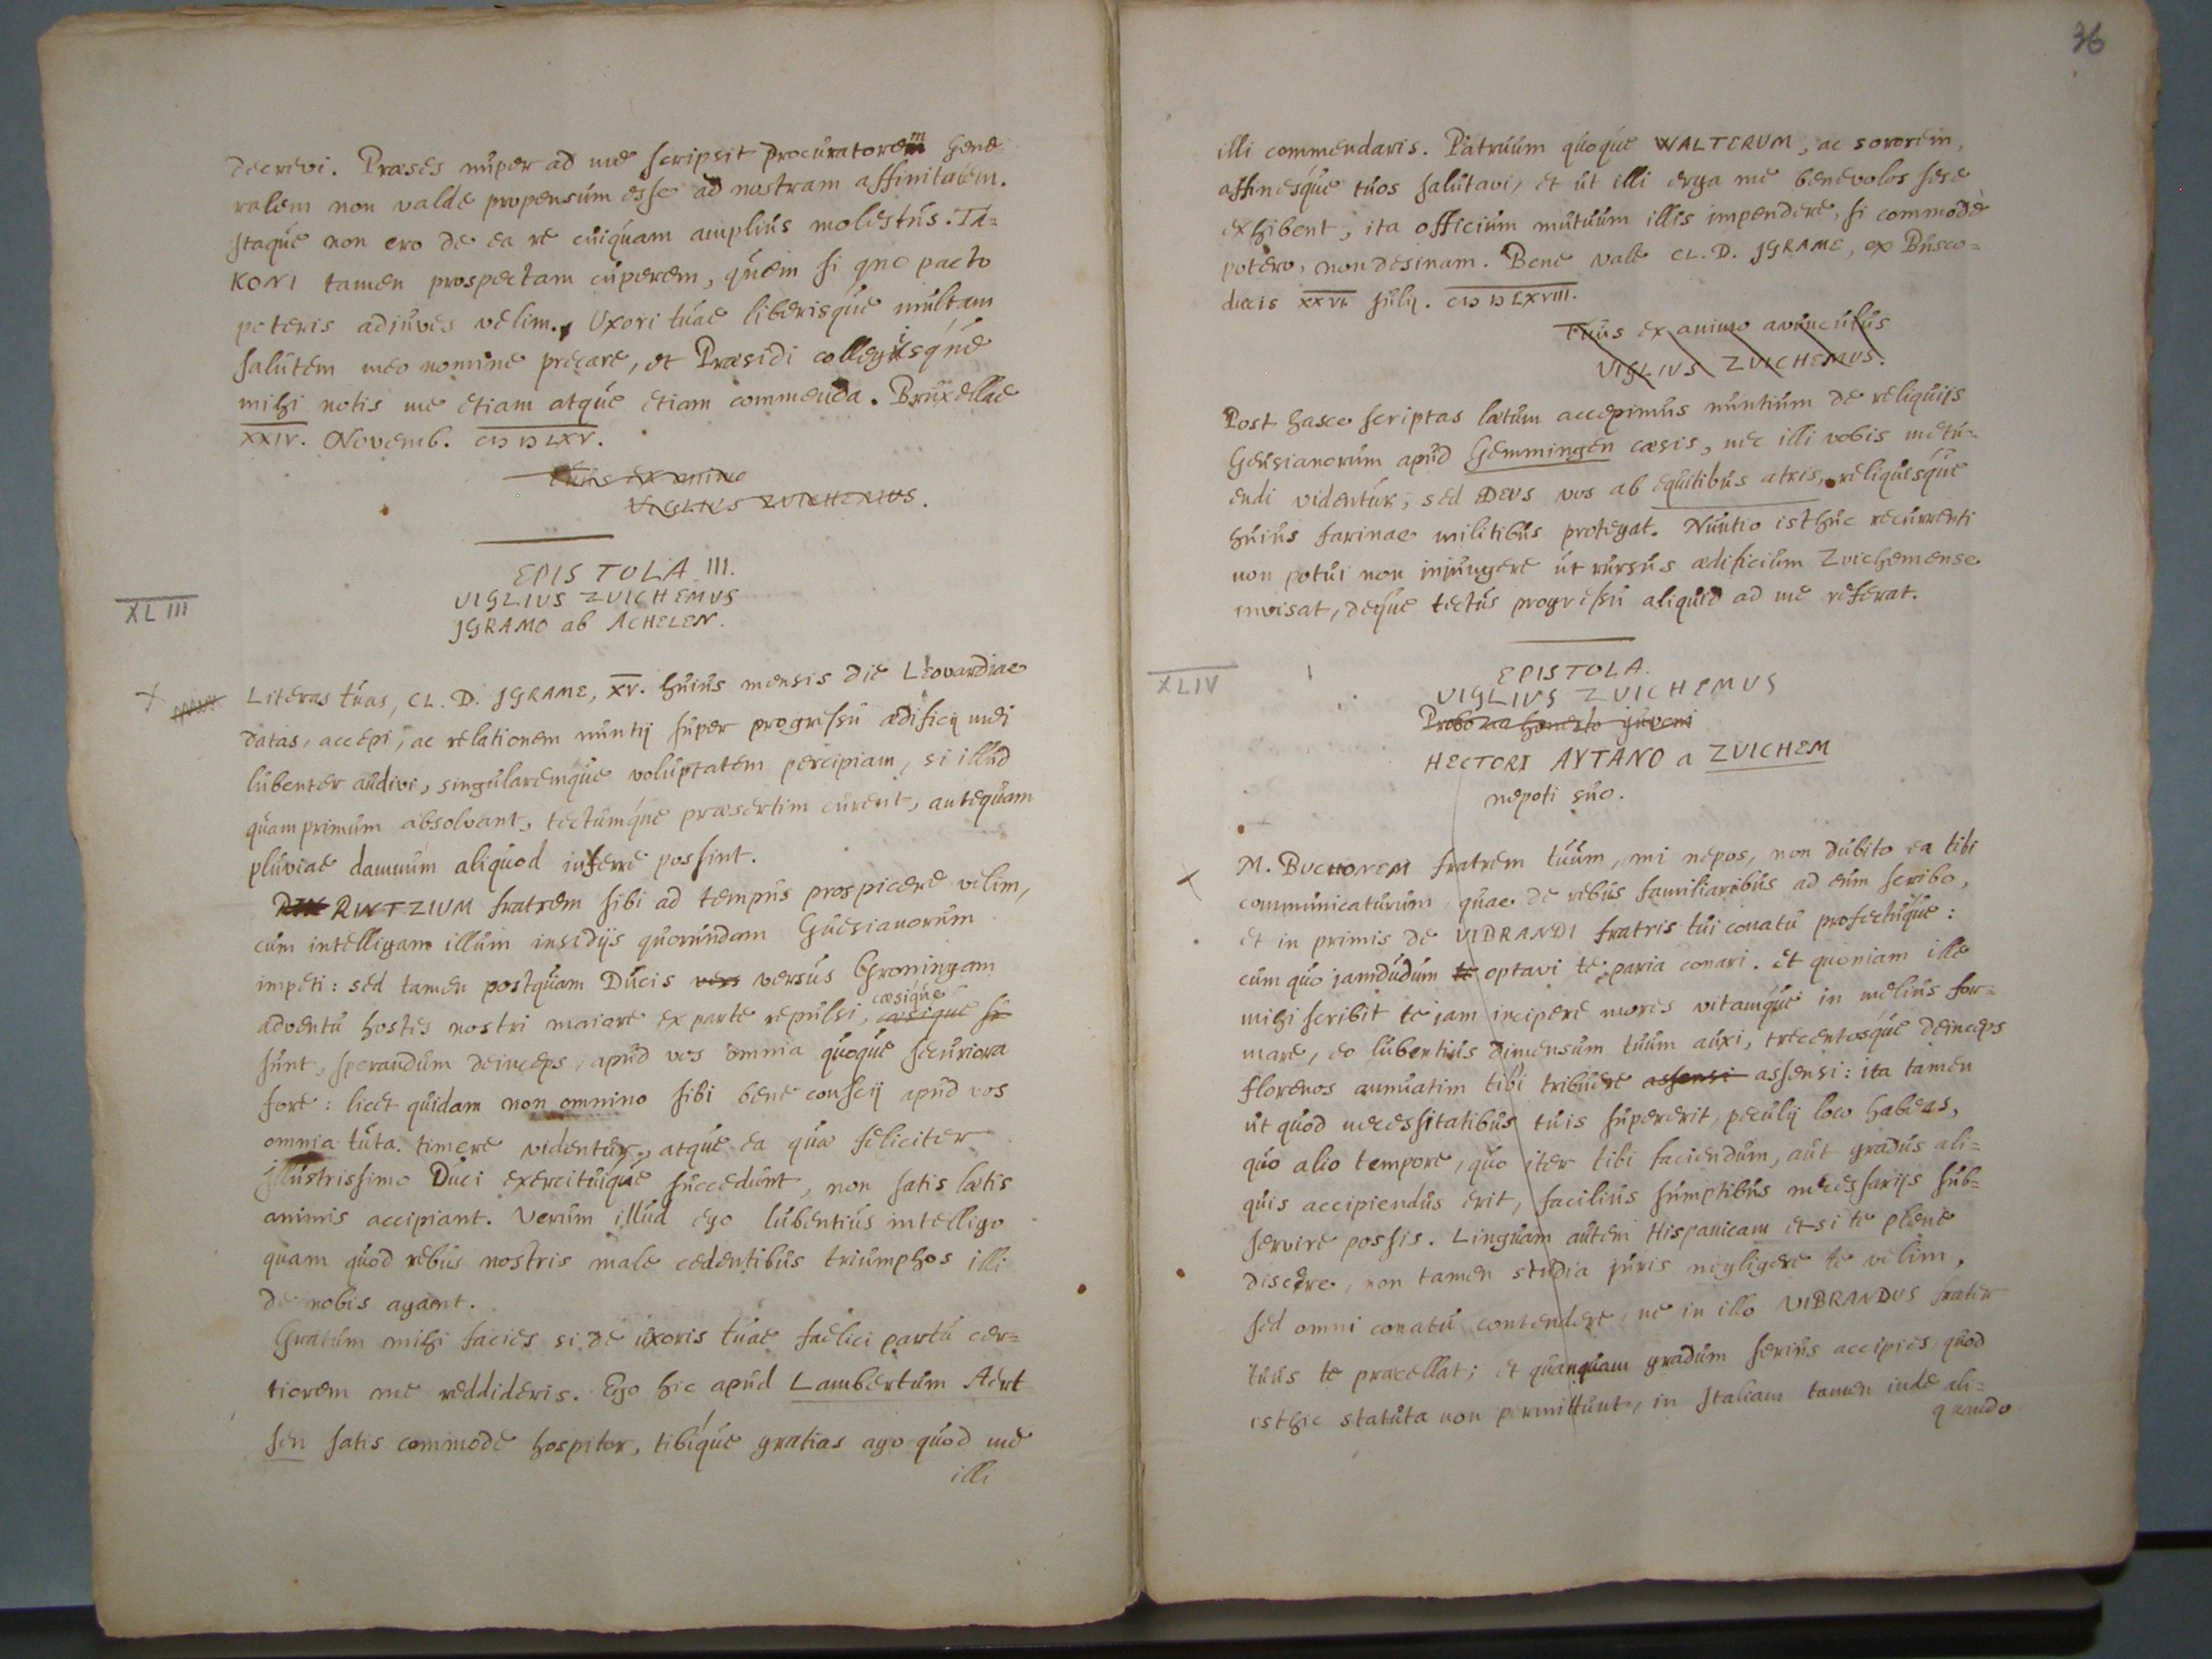 decrevi. Præses nuper ad me scripsit procuratorem gene
ralem non valde propensum esse ad nostram affinitatem.
Itaque non ero de ea re cuiquam amplius molestus. TA=
KONI tamen prospectam cuperem, quem si quo pacto
poteris adiuves velim. Uxori tuae liberisque multam
salutem meo nomine precare, et Præsidi collegijsque
mihi notis me etiam atque etiam commenda. Bruxellae
XXIV. Novemb. CIƆ IƆ LXV.
Tuus ex animo
VIGLIUS ZUICHEMUS.
EPISTOLA III.
VIGLIUS ZUICHEMUS
JGRAMO ab ACHELEN.
XLIII
Literas tuas, CL. D. JGRAME, XV. huius mensis die Leovardiae
datas, accepi, ac relationem nuntij super progressu ædificij mei
lubenter audivi, singularemque voluptatem percipiam, si illud
quamprimum absolvant, tectumque præsertim curent, antequam
pluviae damnum aliquod inferre possint.
RIN RINTZIUM fratrem sibi ad tempus prospicere velim,
cum intelligam illum insidijs quorundam Guesianorum
impeti: sed tamen postquam Ducis vers versus Groningam
adventu hostes nostri maiore ex parte repulsi, cæsique
sunt, sperandum deinceps, apud vos omnia quoque securiora
fore: licet quidam non omnino sibi bene conscij apud vos
omnia tuta timere videntur, atque ea quæ feliciter
Jllustrissimo Duci exercituique succedunt, non satis lætis
animis accipiant. Verum illud ego lubentius intelligo
quam quod rebus nostris male cedentibus triumphos illi
de nobis agant.
Gratum mihi facies si de uxoris tuae fælici partu cer=
tiorem me reddideris. Ego hic apud Lambertum Aert
sen satis commode hospitor, tibique gratias ago quod me
illi
36
illi commendaris. Patruum quoque WALTERUM, ac sororem,
affinesque tuos salutavi, et ut illi erga me benevolos sese
exhibent, ita officium mutuum illis impendere, si commode
potero, non desinam. Bene vale CL. D. JGRAME, ex Busco=
ducis XXVI. Julij. CIƆ IƆ LXVIII.
Tuus ex animo avunculus
VIGLIUS ZUICHEMUS.
Post hasce scriptas lætum accepimus nuntium de reliquijs
Geusianorum apud Gemmingen cæsis, nec illi vobis metu=
endi videntur, sed DEUS vos ab equitibus atris, reliquisque
huius farinae militibus protegat. Nuntio isthuc recurrenti
non potui non injungere ut rursus ædificium Zuichemense
invisat, deque tectus progressu aliquid ad me referat.
XLIV
EPISTOLA.
VIGLIUS ZUICHEMUS
Probo ac honesto juveni
HECTORI AYTANO a ZUICHEM
nepoti suo.
M. BUCHONEM fratrem tuum, mi nepos, non dubito ea tibi
communicaturum quae de rebus familiaribus ad eum scribo,
et in primis de VIBRANDI fratris tui conatu profectuque:
cum quo jamdudum te optavi te paria conari. et quoniam ille
mihi scribit te jam incipere mores vitamque in melius for=
mare, eo lubentius dimensum tuum auxi, trecentosque deinceps
florenos annuatim tibi tribuere assensi assensi: ita tamen
ut quod necessitatibus tuis supererit, peculij loco habeas,
quo alio tempore, quo iter tibi faciendum, aut gradus ali=
quis accipiendus erit, facilius sumptibus necessarijs sub=
servire possis. Linguam autem Hispanicam etsi te plene
discere, non tamen studia juris negligere te velim,
sed omni conatu contendere, ne in illo VIBRANDUS frater
tuus te præcellat; et quanquam gradum serius accipies quod
isthic statuta non permittunt, in Italiam tamen inde ali=
quando